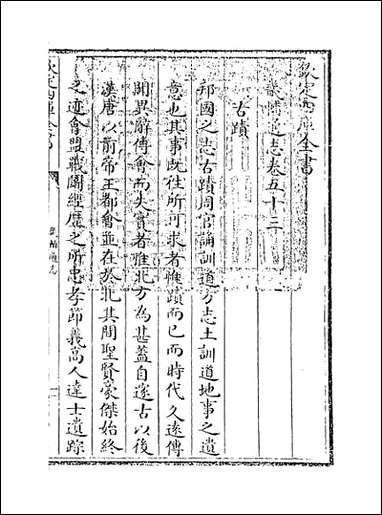 欽定四庫全書
畿輔通志卷五十三
古蹟
邦國之志古蹟周官誦訓道方志土訓道地事之遺
意也其事既往所可求者惟蹟而已而時代久遠傳
聞異辭傅會而失實者惟北方為甚蓋自邃古以後
漢唐以前帝王都會並在於北其間聖賢豪傑始終
之迹會盟戰鬬經歴之所忠孝節義高人達士遺踪
欽定四庫全書
畿輔通志